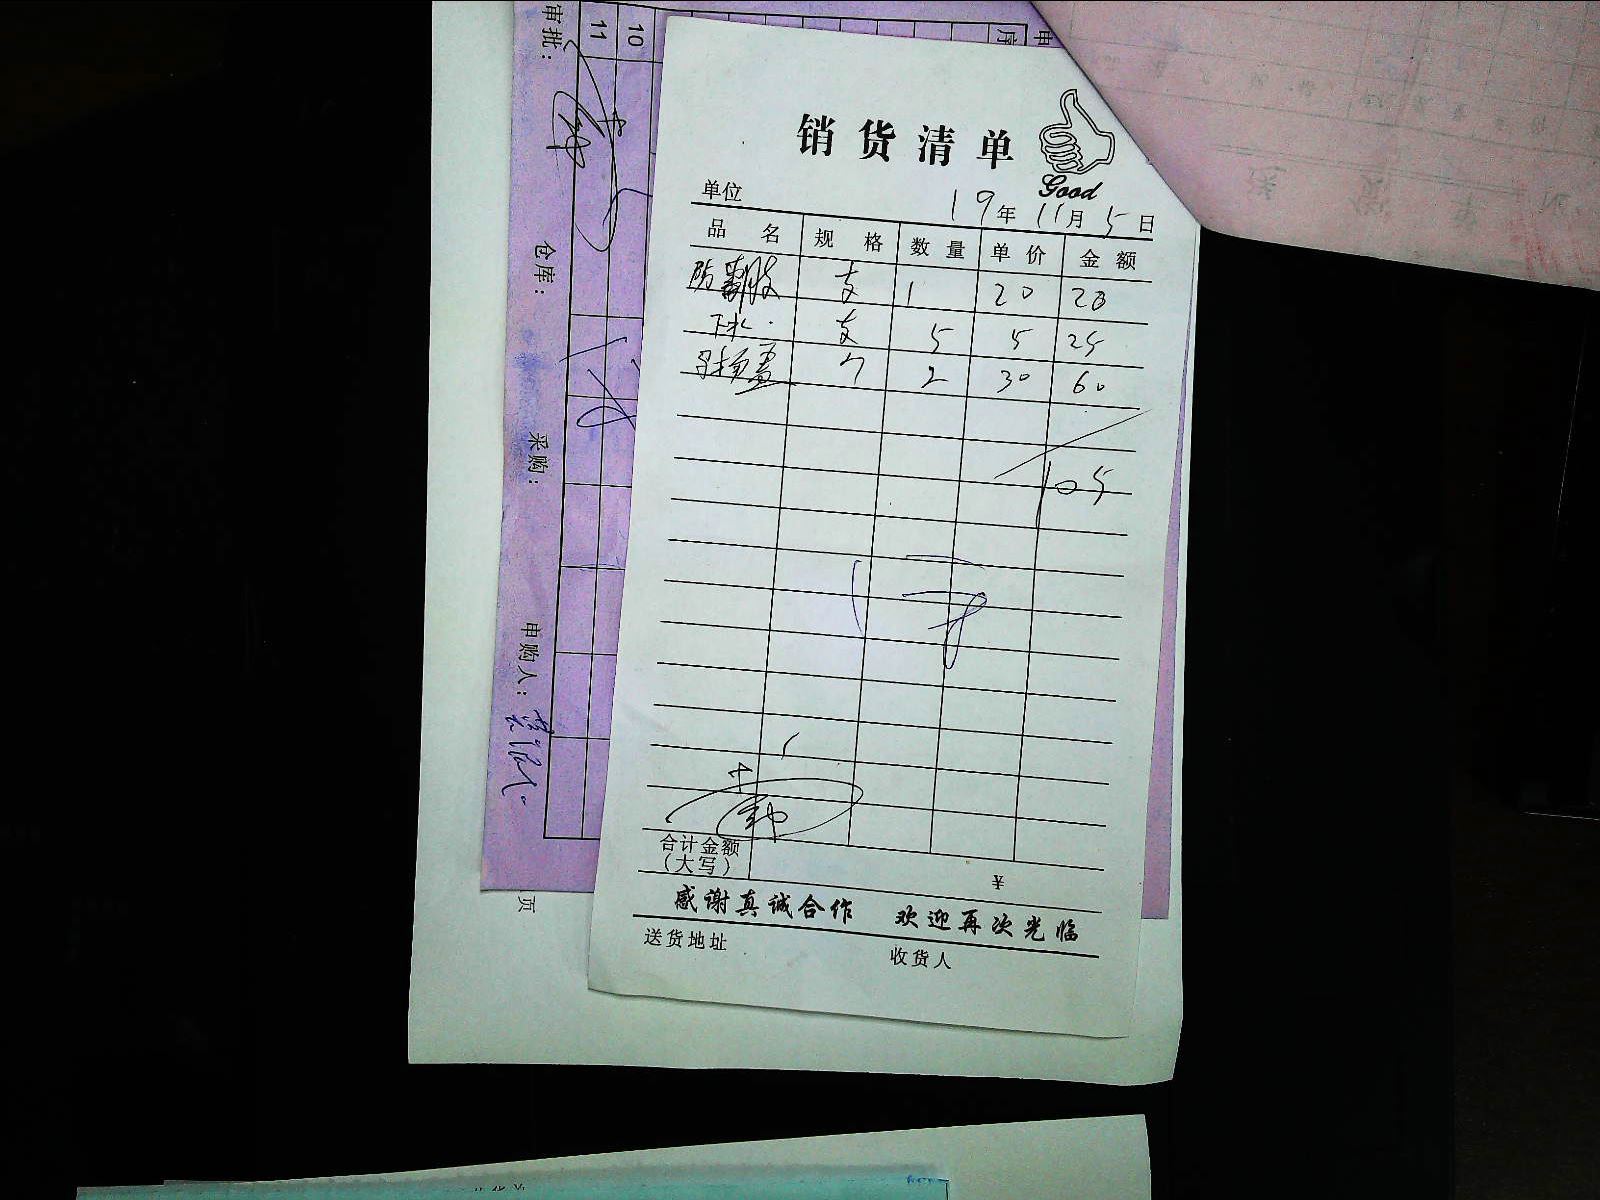 销货清单
Good
单位 19年11月5日
品名 规格 数量 单价 金额
支 1 20 20
下水 支 5 5 25
马桶盖 个 2 30 60
105
合计金额
(大写) ¥
感谢真诚合作 欢迎再次光临
送货地址 收货人
审批:
仓库:
采购:
申购人:
10
11
序
申
页